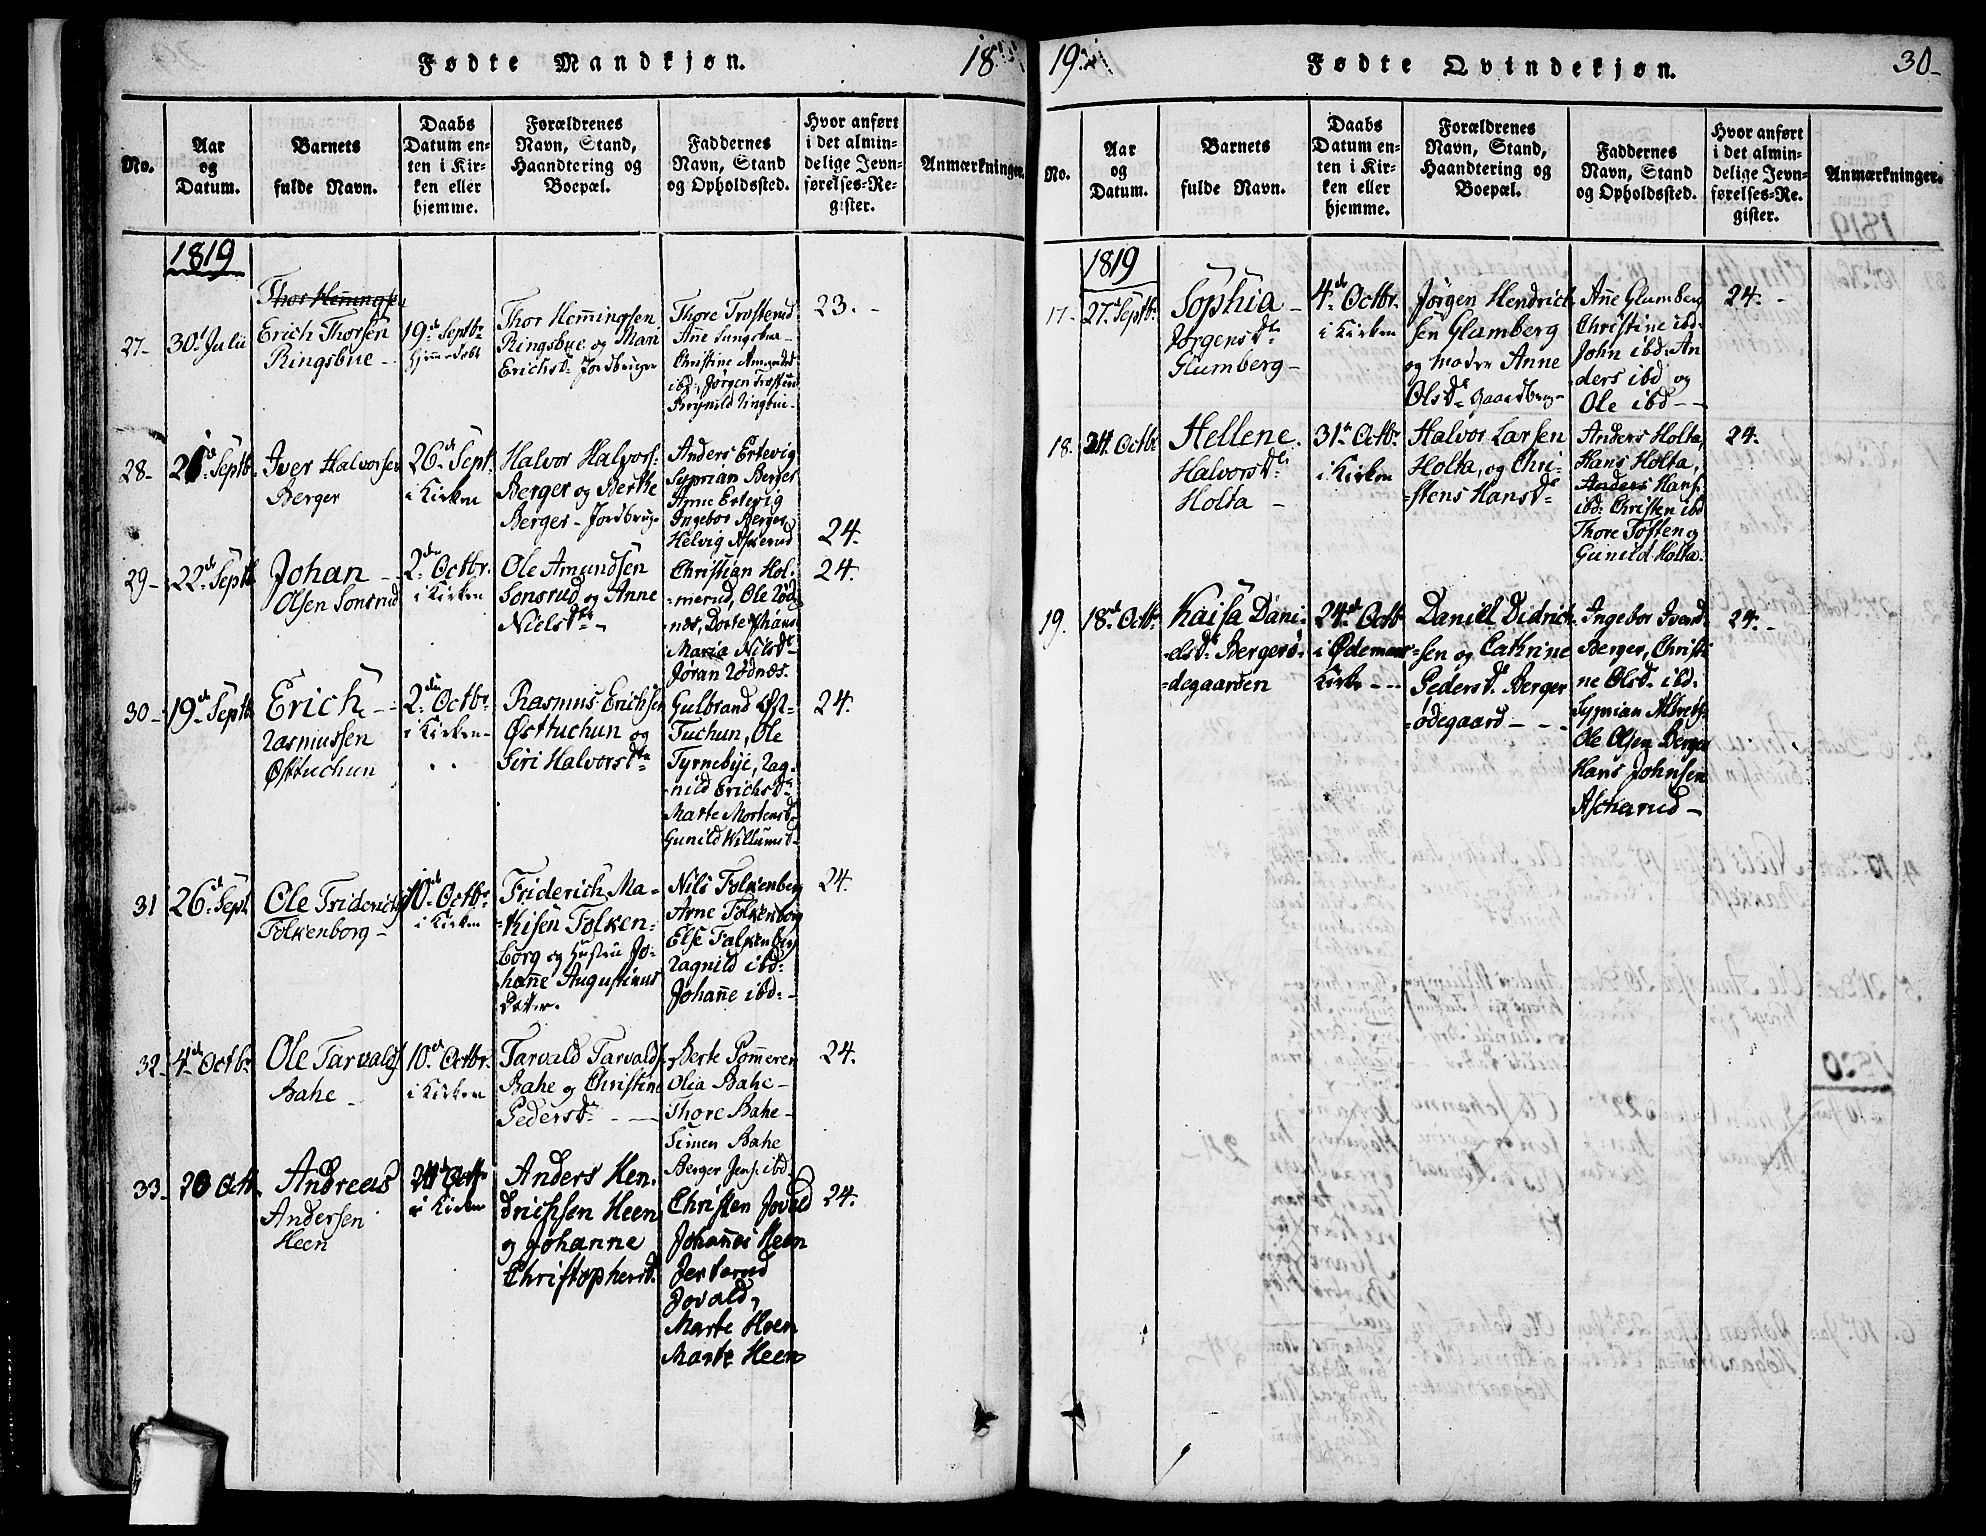 Fødte Mandkjøn.
18
No.
Aar
og
Datum.
Barnets
fulde Navn.
Daabs
Datum en-
ten i Kir-
ken eller
hjemme.
Forældrenes
Navn, Stand,
Haandtering og
Boepæl.
Faddernes
Navn, Stand
og Opholdssted.
Hvor anført
i det almin-
delige Jevn-
førelses-Re-
gister.
Anmærkninger.
1819
27-
30d Julii
Thor Hemingsen
Erich Thorsen
Ringsbue -
19d Septbr
hjemmedøbt
Thor Hemmingsen
Ringsbue og Mari
Erichsd. Jordbruger
Thore Trosterud
Anne
Christine
ibd. Jørgen Trosterud
23. -
28-
Septb.
Iver Halvorsen
Berger
26d Sept.
i Kirken
Halvor Halvors.
Berger og Berthe
Berger - Jordbrug.
Anders Ertevig
Syprian Berger
Anne Ertevig
Ingebor Berger
Helvig Askerud
24.
29-
22d Septb
Johan -
Olsen Sonsrud
2den Octbr.
i Kirken
Ole Amundsen
Sonsrud og Anne
Nielsdtr -
Christian Hol-
merud, Ole Rød-
næs, Dorte
Maria Nilsd.
Jøran Rødnæs.
24.
30-
19d Septb
Erich -
Rasmussen
Østtuchun
2den Octbr.
i Kirken -
Rasmus Erichsen
Østtuchun og
Siri Halvorsdtr
Gulbrand Øst-
Tuchun, Ole
Tyrnebye, Rag-
nild Erichsd.
Marte Mortensd
Gunild Killumsd
24.
31
26d Sept.
Ole Friderichs
Folkenborg -
10de Octbr.
i Kirken
Friderich Ma-
-kisen Folken-
borg og Hustru Jo-
hanne Augustinus
Datter.
Nils Folkenberg
Arne Folkenborg
Else Falkenberg
Ragnild ibd:
Johanne ibd: -
24.
32-
4d Octbr
Ole Tarvalds
Bahe -
10d Octbr.
i Kirken
Tarvald Tarvalds
Bahe og Christine
Pedersdr -
Berte Sommeren
Olia Bahe -
Thore Bahe -
Simen Bahe
Berger Jens. ibd
24.
33-
20 Octb.
Andreas
Andersen
Heen
24d Octb
i Kirken
Anders Hen
drichsen Heen
og Johanne
Christophersd.
Christen Jovald
Johannes Heen
Jovald,
Marte Heen
Marte Heen
24.
19
Fødte Qvindekjøn.
30-
No.
Aar
og
Datum.
Barnets
fulde Navn.
Daabs
Datum en-
ten i Kir-
ken eller
hjemme.
Forældrenes
Navn, Stand,
Haandtering og
Boepæl.
Faddernes
Navn, Stand
og Opholdssted.
Hvor anført
i det almin-
delige Jevn-
førelses-Re-
gister.
Anmærkninger.
1819
17-
27d Septb.
Sophia -
Jørgensdtr
Glumberg -
4de Octbr.
i Kirken
Jørgen Hendrich
sen Glumberg
og Moder Anne
Olsdr Gaardbrug -
Anne Glumberg
Christine ibd.
John ibd. An
ders ibd og
Ole ibd -
24. -
18.
24 Octbr
Hellene.
Halvorsdtr
Holta -
31te Octbr.
i Kirken
Halvor Larsen
Holta, og Chri-
-stens Hansdr
Anders Holta,
Hans Holta,
Anders Hans.
ibd: Christen ibd
Thore Toften og
Gunild Holta.
24.
19.
18d Octbr
Kaisa Dani-
elsdr Bergerø-
-degaarden
24d Octb
i Ødemar
Kirke -
Daniel Didrich-
-sen og Cathrine
Pedersd. Berger
-ødegaard -
Ingebor Iversd.
Berger, Christi
ne Olsd. ibd.
Syprian
Ole Olsen Berger
Hans Johnsen
Ascherud -
24. -